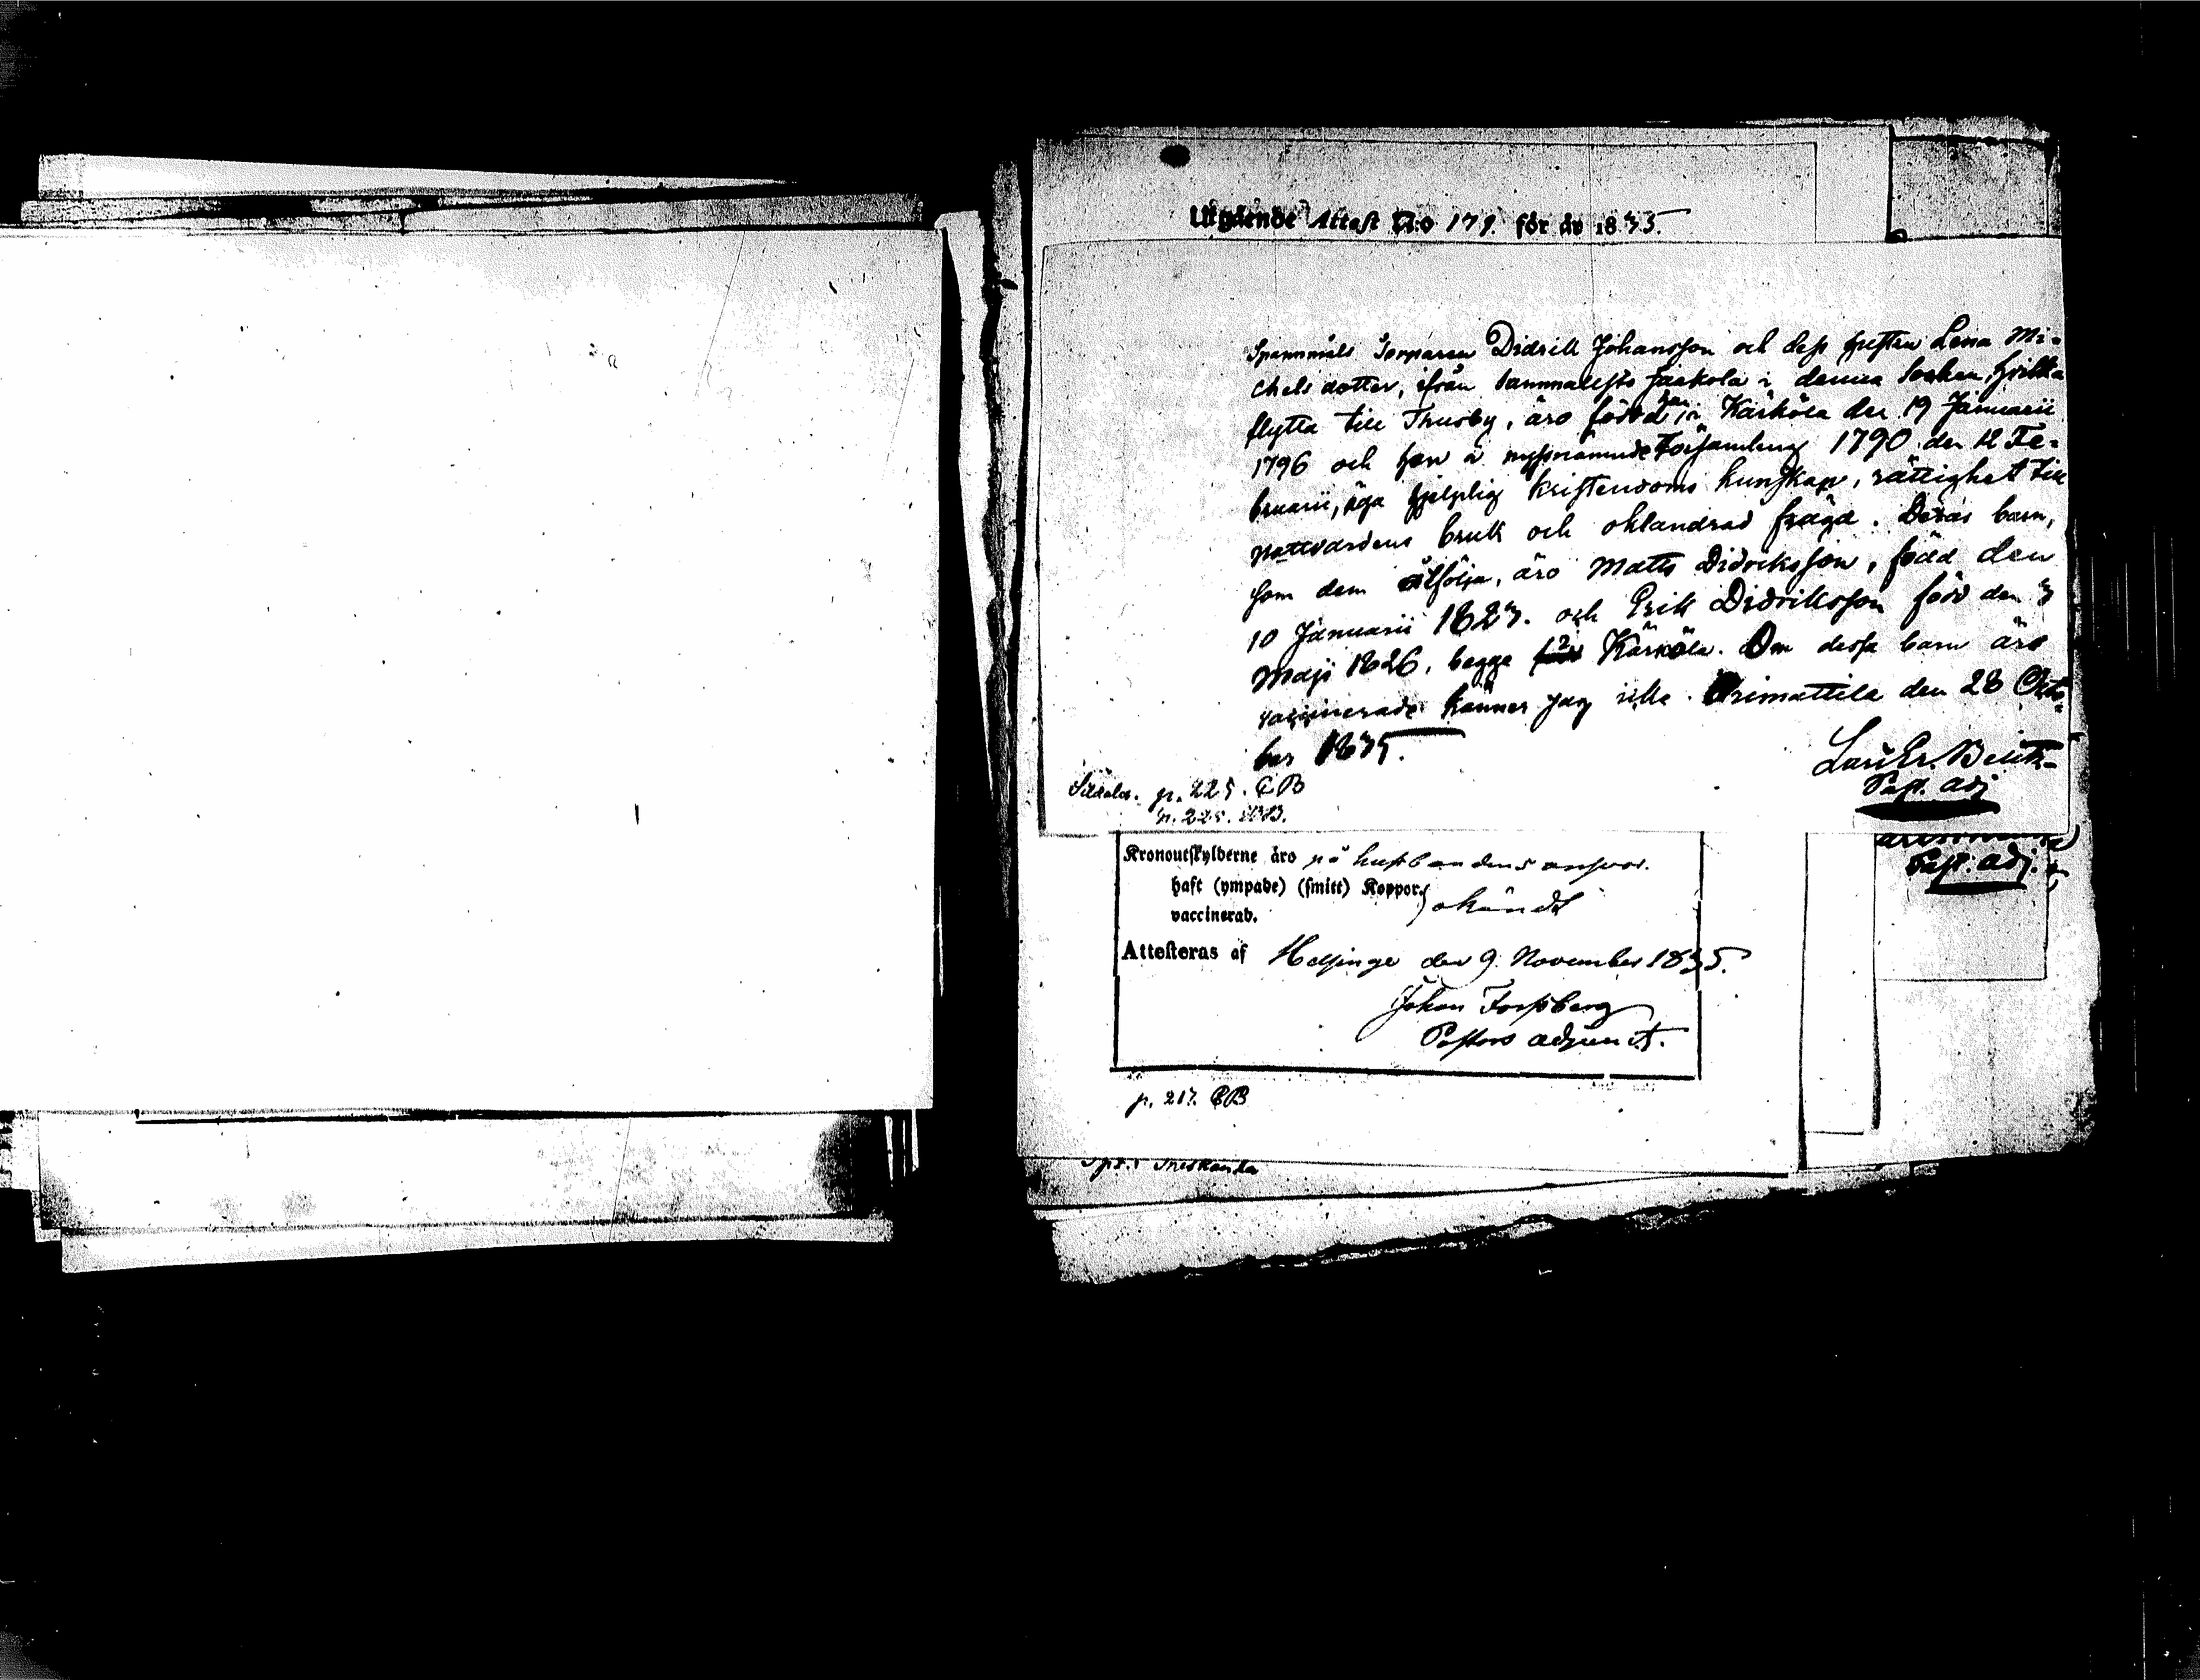 Utgående Attest N:o 179. för år 1835.
Spannmåls Torparen Didrik Johansson och dess hustru Lena Mi-
chels dotter, ifrån Sammalisto Jaakola i denna Socken, hvilka
flytta till Thusby, äro födde han i Kärkölä den 19 Januarii
1796 och hon i nyssnämnde Församling 1790 den 12 Fe-
bruarii, äga hjelplig kristendoms kunskap, rättighet till
nattvardens bruk och oklandrad frägd. Deras barn,
som dem åtfölja, äro Matts Didriksson, född den
10 Januarii 1823. och Erik Didriksson född den 3
Maji 1826, begge i Kärkölä. Om dessa barn äro
vaccinerade känner jag icke. Orimattila den 28 Octo-
ber 1835.
Past. adj
p. 225. CB
p. 225.
Kronoutskylderne äro på husbondens ansvar.
haft (ympade) (smitt) Koppor
vaccinerad. okändt
Attesteras af Helsinge den 9 November 1835.
Johan Forssberg
Pastors adjunct.
Past. adj.
p. 217. CB